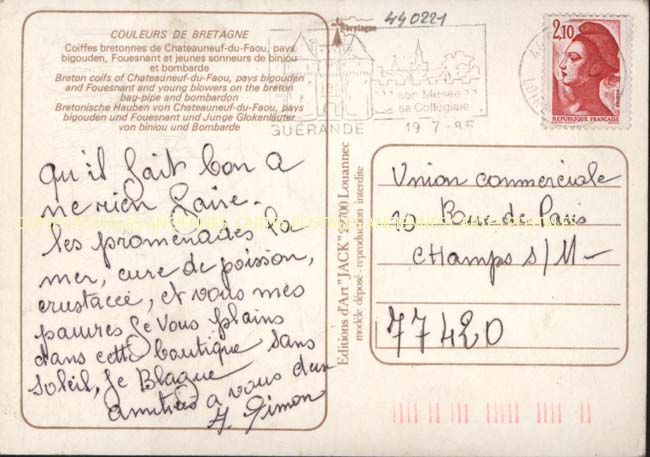 COULEURS DE BRETAGNE
Coiffes bretonnes de Chateauneuf-du-Faou, pays
bigouden, Fouesnant et jeunes sonneurs de biniou
et bombarde
Breton coifs of Chateauneuf-du-Faou, pays bigouden
and Fouesnant and young blowers on the breton
bag-pipe and bombardon
Bretonische Hauben von Chateauneuf-du-Faou, pays
bigouden und Fouesnant und Junge Glokenläuter
von biniou und Bombarde
440221
Bretagne
son Musée
sa Collégiale
GUÉRANDE 19-7-85
2,10
REPUBLIQUE FRANÇAISE
qu'il fait bon a
ne rien faire.
les promenades, la
mer, cure de poisson,
crustacée, et vous mes
pauvres je vous plains
dans cette boutique sans
soleil, je Blague
amitiés a vous deux
Simon
Editions d'Art "JACK" 22700 Louannec
modèle déposé - reproduction interdite
Union commerciale
10 Rue de Paris
CHAMPS S/M-
77420